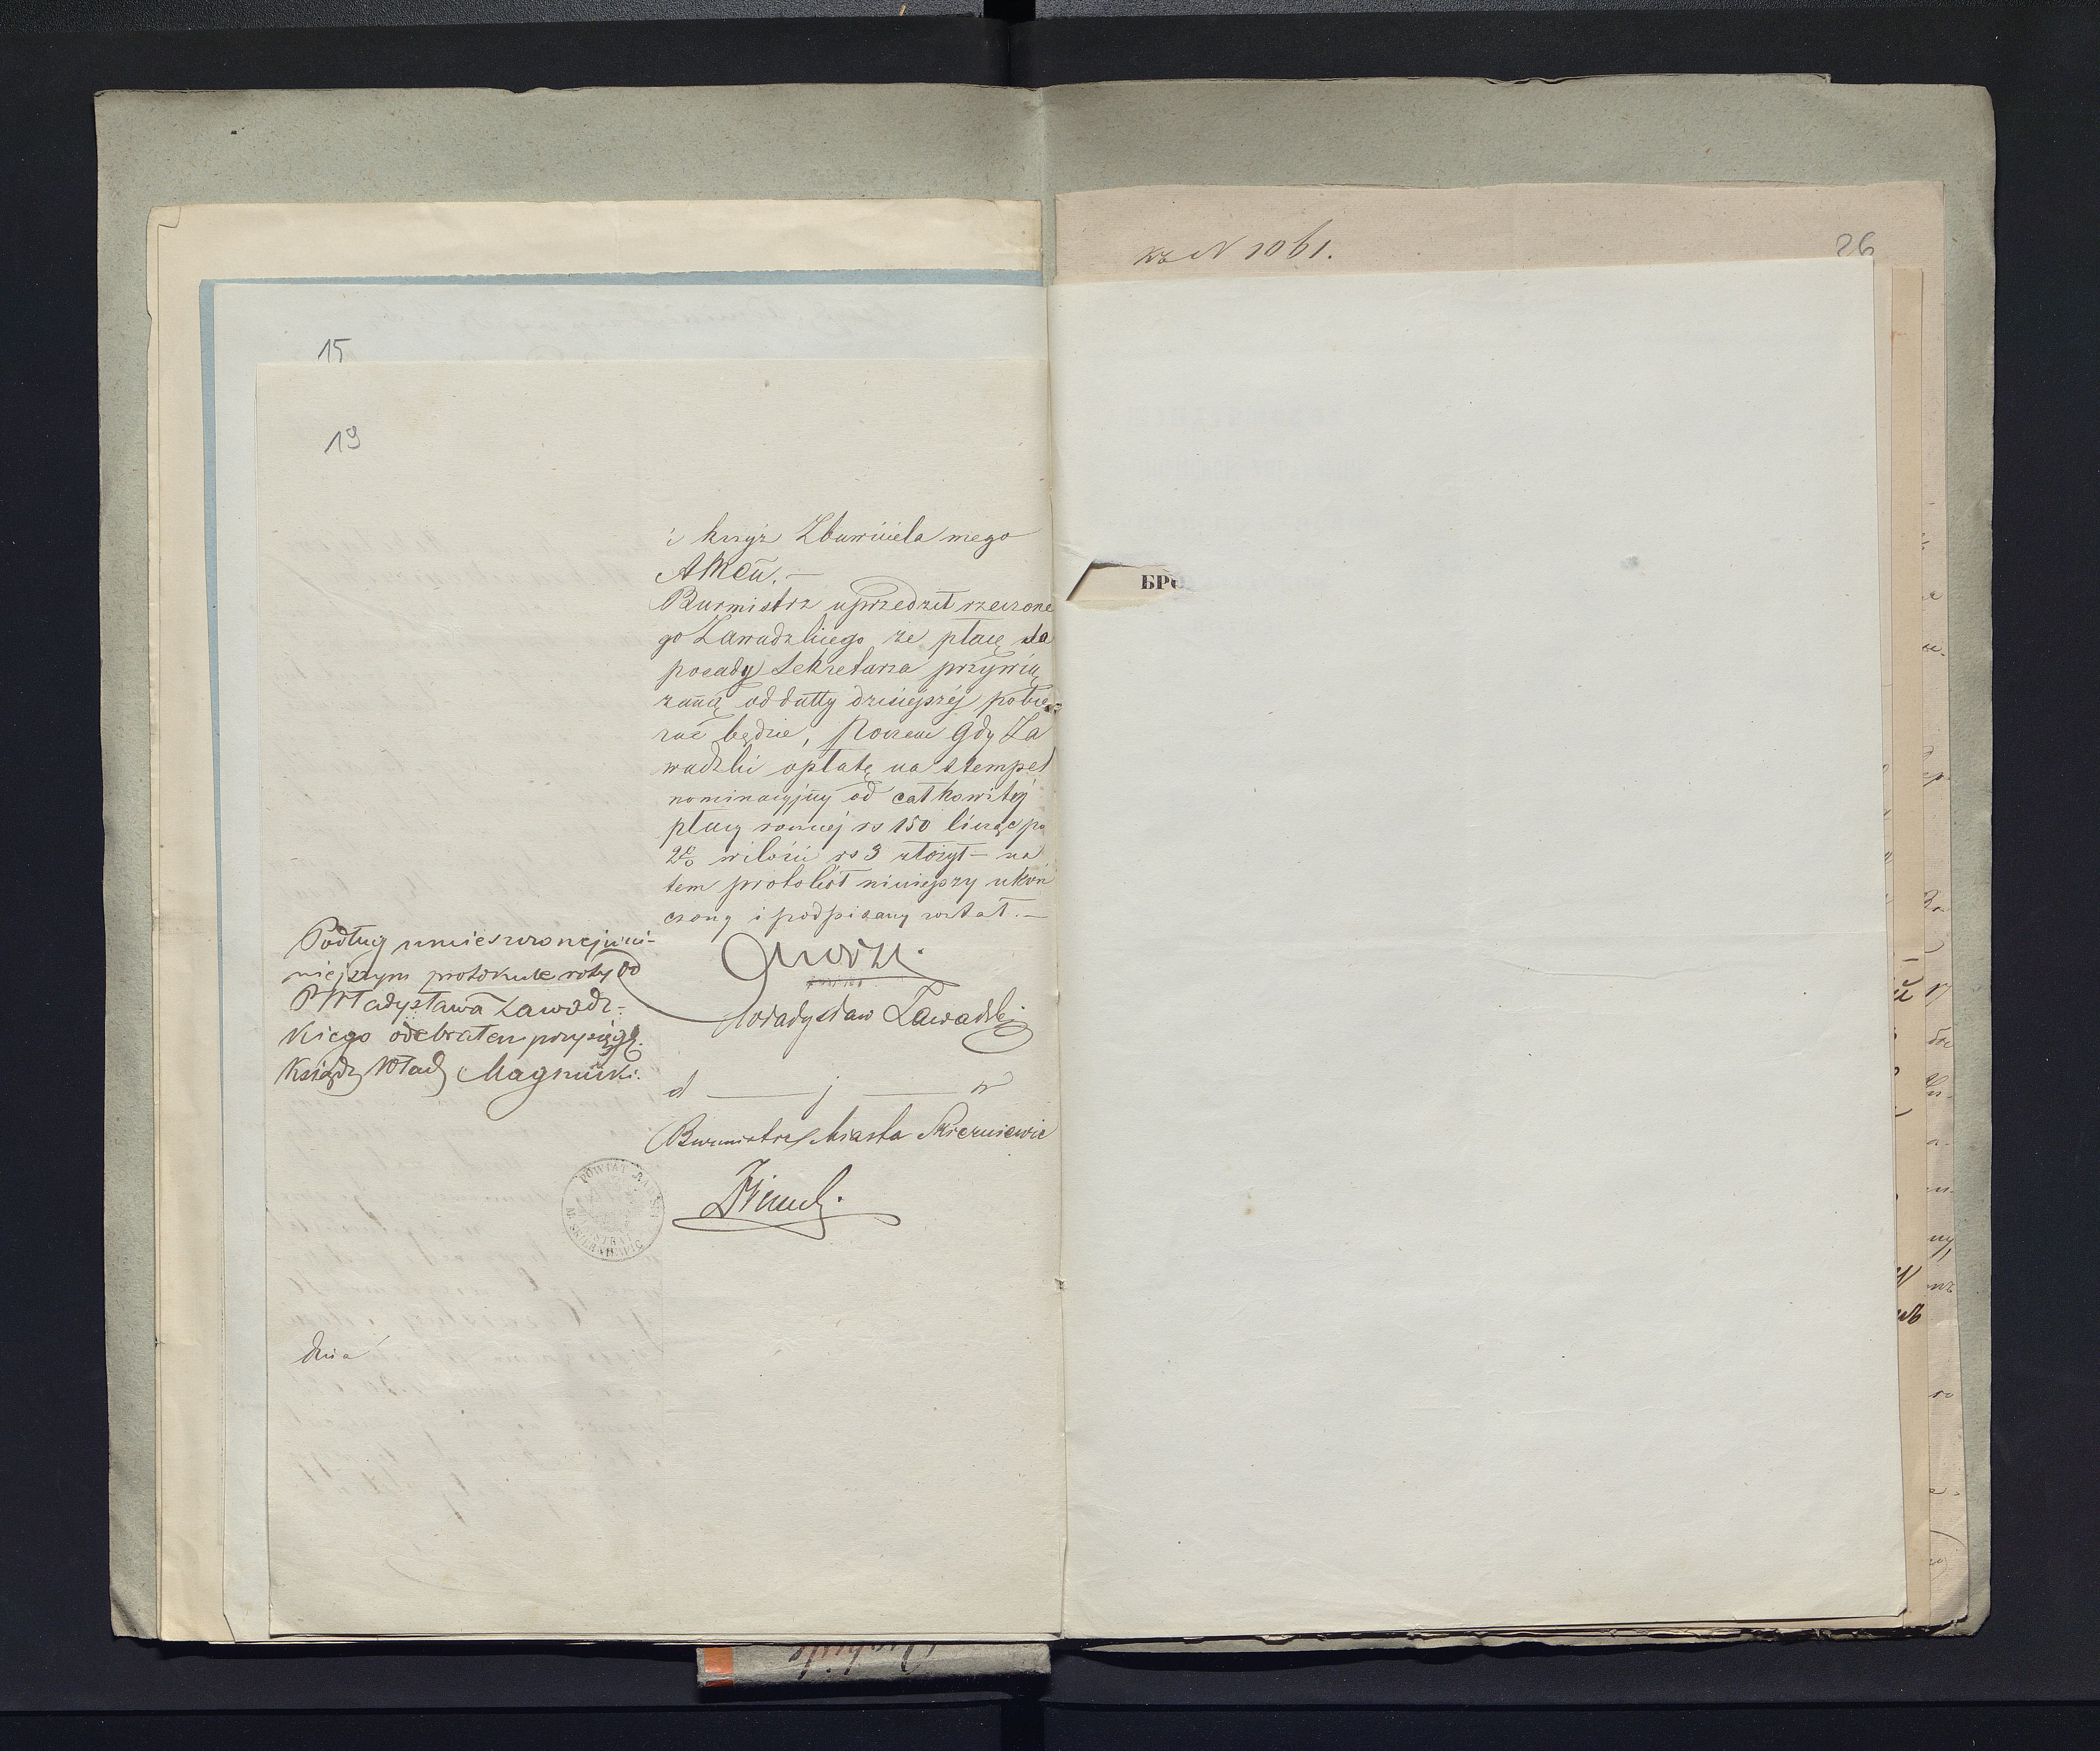 15
19
i krzyż Zbawiciela mego
Amen. —
Burmistrz uprzedził rzeczone
go Zawadzkiego że płacę do
posady Sekretarza przywią
zaną od datty dzisiejszéj pobie
rać będzie, Poczem gdy Za
wadzki opłatę na stempel
nominacyjny od całkowitéj
płacy rocznej rs 150 licząc po
2% wilości rs 3 złożył – na
tem protokół niniejszy ukoń
czony i podpisany został. —
Władysław Zawadzki
d — j — w
Burmistrz Miasta Skierniewic
Podług umieszczonej w ni-
niejszym protokule roty od
P Władysława Zawadz-
kiego odebrałem przysięgę.
Ksiądz Wład Magnuski.
POWIAT RAWSKI
M. SKIERNIEWIC
dnia
къ N 1061.
26
БРО